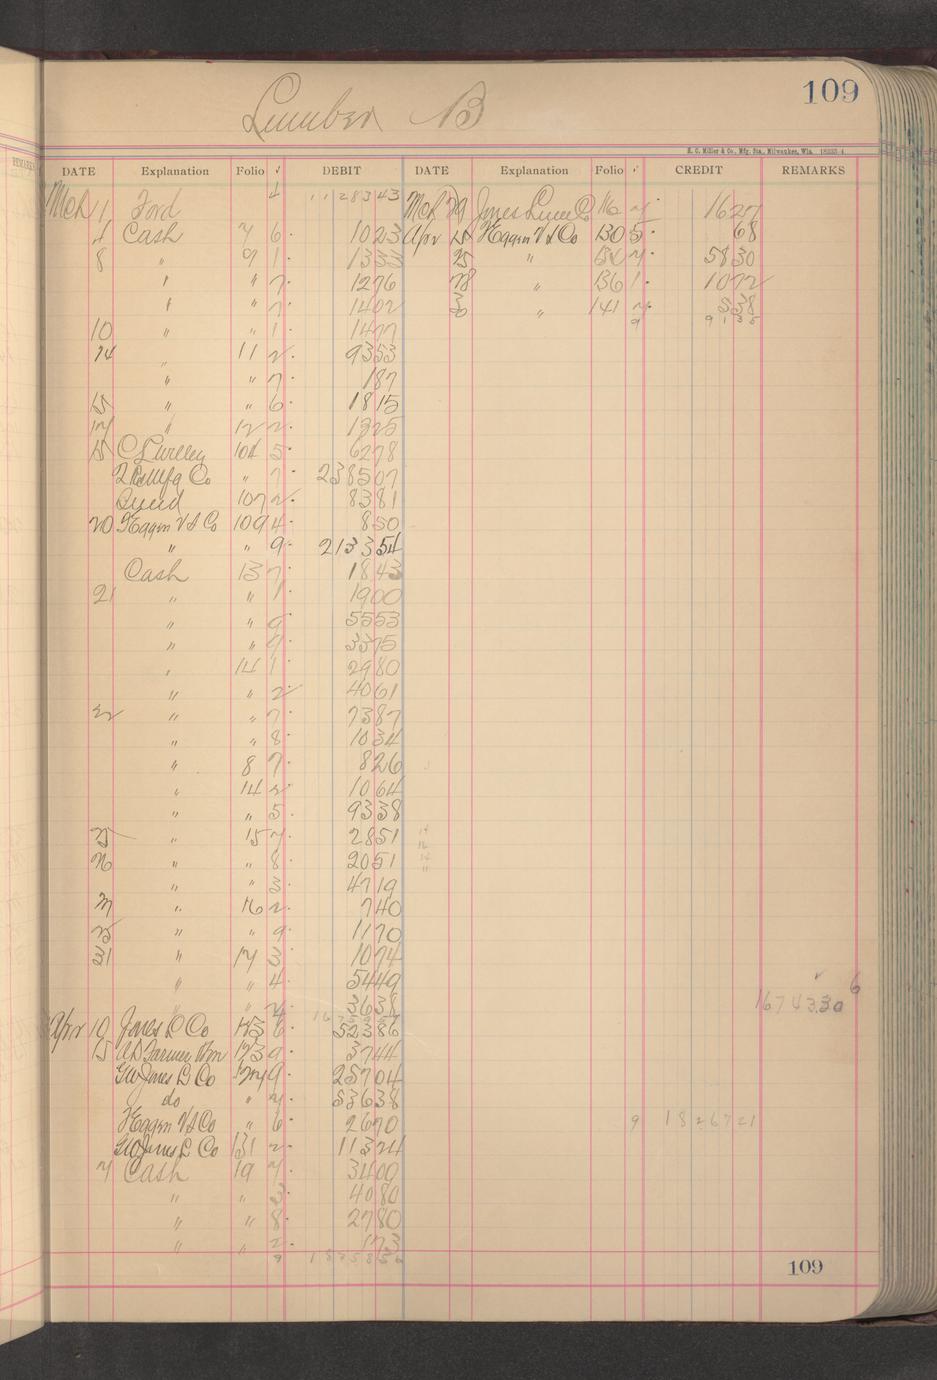 109
Lumber B
H. C. Miller & Co., Mfg. Sta., Milwaukee, Wis.
DATE Explanation Folio ✓ DEBIT DATE Explanation Folio ✓ CREDIT REMARKS
Mch 1 Ford 4 1128343 Mch 29 Jones Lum Co 16 7 1627
4 Cash 7 6 1023 Apr 15 Heggen V & Co 130 5 68
8 " 9 1 1333 25 " 7 5830
" " 7 1276 28 " 136 1 1072
" " 7 1402 30 " 141 538
10 " " 1 1477 9 9135
14 " 11 2 9353
" " 7 187
15 " " 6 1815
17 " 12 2 1325
15 104 5 6278
Mfg Co " 7 238507
107 2 8381
20 Heggen V & Co 109 4 850
" " 9 213354
Cash 13 7 1843
21 " " 1 1900
" " 9 5553
" " 9 3375
" 14 1 2980
" " 2 4061
22 " " 7 7387
" " 8 1034
" 8 7 826
" 14 2 1064
" " 5 9338
25 " 15 7 2851
26 " " 8 2051
" " 3 4719
" 16 2 740
" " 9 1170
31 " 17 3 1074
" " 4 5449 6
" " 3638 1674330
Apr 10 Jones L Co 6 52386
15 123 9 3744
GW Jones L Co 9 25704
do " 7 53638
Heggen V & Co " 6 2670 9 1826721
GW Jones L Co 131 2 11324
7 Cash 19 7 3400
" " 3 4080
" " 8 2780
" " 2 173
9 1835856
109